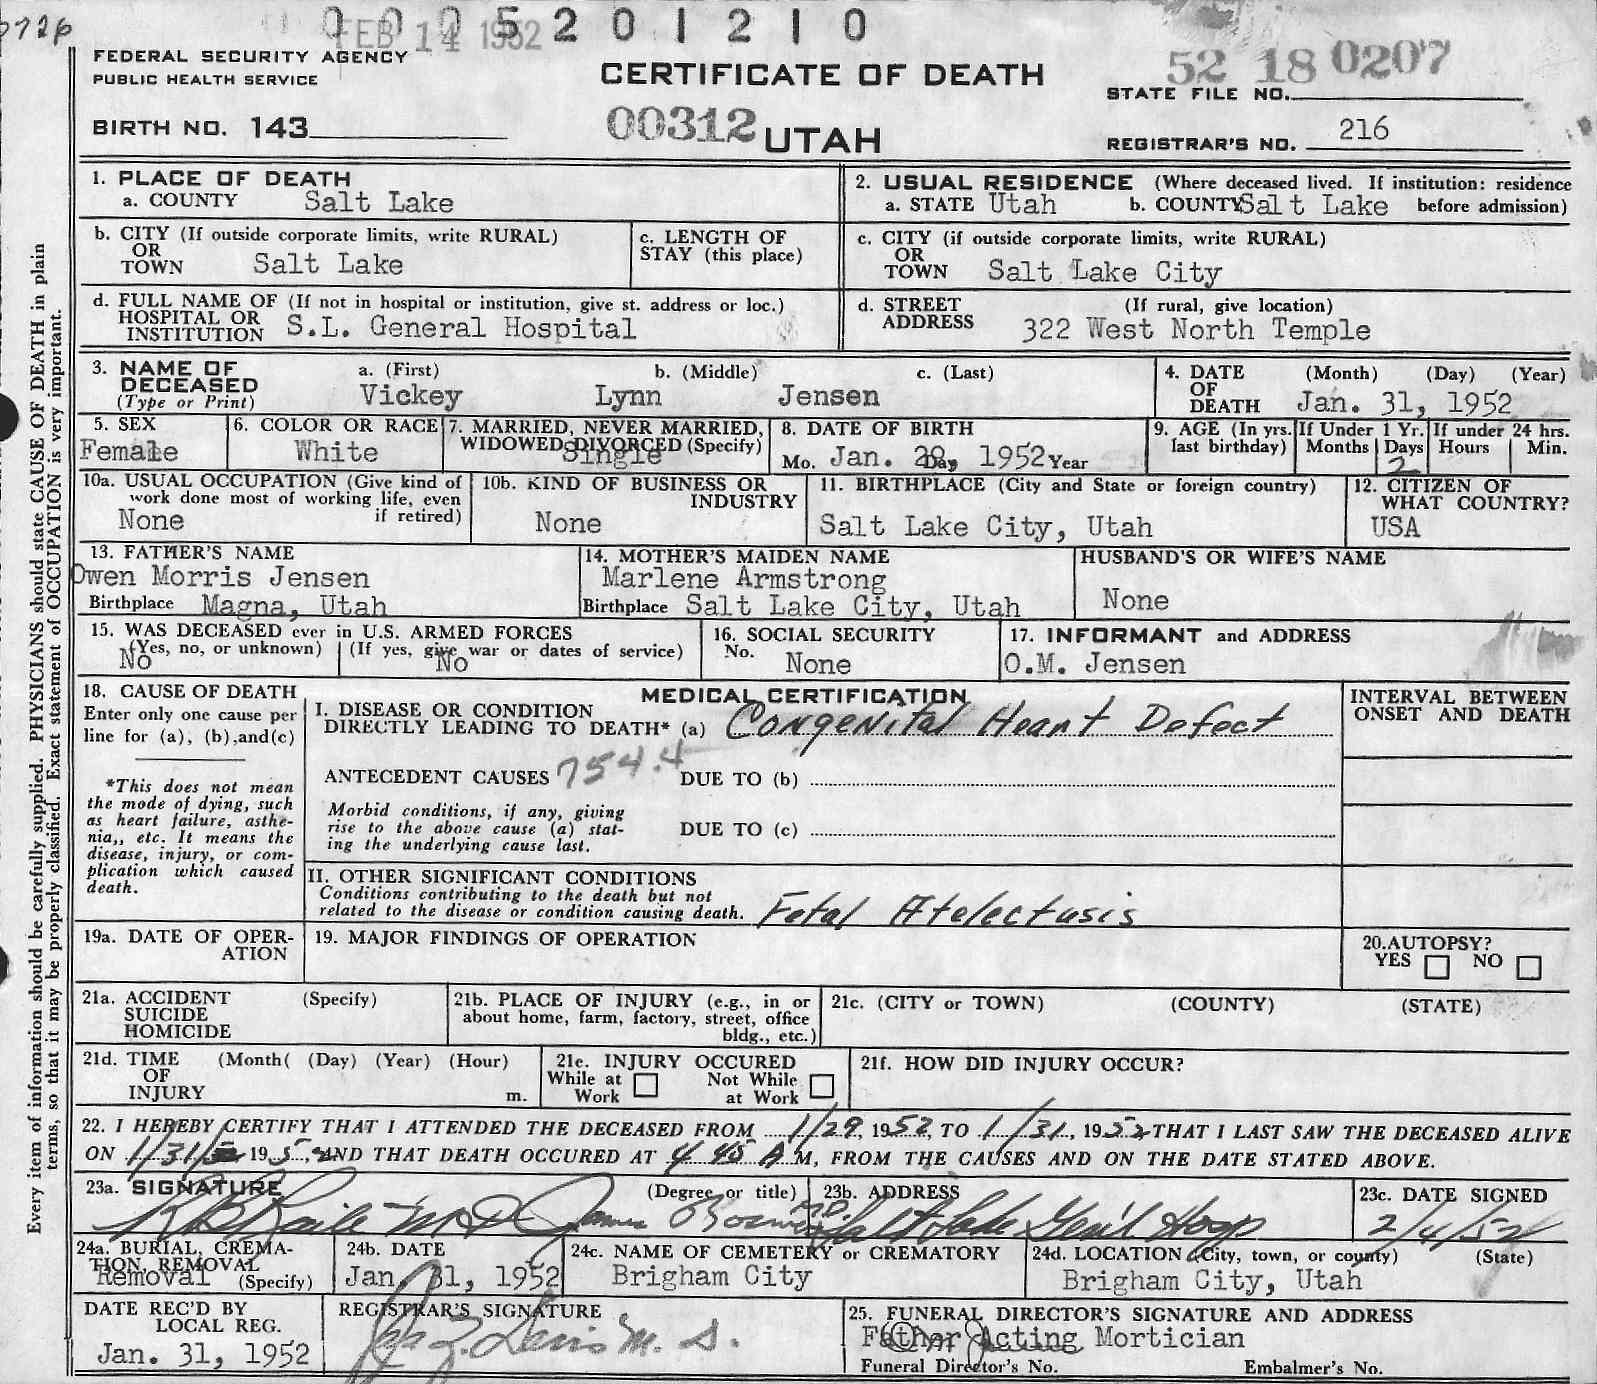 0 0 0 5 2 0 1 2 1 0
FEB 14 1952
FEDERAL SECURITY AGENCY
PUBLIC HEALTH SERVICE
CERTIFICATE OF DEATH
52 18 0207
STATE FILE NO.
BIRTH NO. 143
00312 UTAH
REGISTRAR'S NO. 216
1. PLACE OF DEATH
a. COUNTY Salt Lake
2. USUAL RESIDENCE (Where deceased lived. If institution: residence
a. STATE Utah b. COUNTY Salt Lake before admission)
b. CITY (If outside corporate limits, write RURAL)
OR
TOWN Salt Lake
c. LENGTH OF
STAY (this place)
c. CITY (if outside corporate limits, write RURAL)
OR
TOWN Salt Lake City
d. FULL NAME OF (If not in hospital or institution, give st. address or loc.)
HOSPITAL OR
INSTITUTION S.L. General Hospital
d. STREET (If rural, give location)
ADDRESS 322 West North Temple
3. NAME OF DECEASED
(Type or Print)
a. (First) b. (Middle) c. (Last)
Vickey Lynn Jensen
4. DATE OF DEATH (Month) (Day) (Year)
Jan. 31, 1952
5. SEX
Female
6. COLOR OR RACE
White
7. MARRIED, NEVER MARRIED,
WIDOWED DIVORCED (Specify)
Single
8. DATE OF BIRTH
Mo. Jan. 28, Day 1952 Year
9. AGE (In yrs. last birthday)
If Under 1 Yr. Months Days
2
If under 24 hrs. Hours Min.
10a. USUAL OCCUPATION (Give kind of
work done most of working life, even
if retired)
None
10b. KIND OF BUSINESS OR
INDUSTRY
None
11. BIRTHPLACE (City and State or foreign country)
Salt Lake City, Utah
12. CITIZEN OF
WHAT COUNTRY?
USA
13. FATHER'S NAME
Owen Morris Jensen
Birthplace Magna, Utah
14. MOTHER'S MAIDEN NAME
Marlene Armstrong
Birthplace Salt Lake City, Utah
HUSBAND'S OR WIFE'S NAME
None
15. WAS DECEASED ever in U.S. ARMED FORCES
(Yes, no, or unknown) (If yes, give war or dates of service)
No No
16. SOCIAL SECURITY
No.
None
17. INFORMANT and ADDRESS
O.M. Jensen
18. CAUSE OF DEATH
Enter only one cause per
line for (a), (b),and(c)
*This does not mean
the mode of dying, such
as heart failure, asthe-
nia,, etc. It means the
disease, injury, or com-
plication which caused
death.
MEDICAL CERTIFICATION
I. DISEASE OR CONDITION
DIRECTLY LEADING TO DEATH* (a) Congenital Heart Defect
ANTECEDENT CAUSES 754.4 DUE TO (b)
Morbid conditions, if any, giving
rise to the above cause (a) stat-
ing the underlying cause last.
DUE TO (c)
II. OTHER SIGNIFICANT CONDITIONS
Conditions contributing to the death but not
related to the disease or condition causing death. Fetal Atelectasis
INTERVAL BETWEEN
ONSET AND DEATH
19a. DATE OF OPER-
ATION
19. MAJOR FINDINGS OF OPERATION
20.AUTOPSY?
YES NO
21a. ACCIDENT (Specify)
SUICIDE
HOMICIDE
21b. PLACE OF INJURY (e.g., in or
about home, farm, factory, street, office
bldg., etc.)
21c. (CITY or TOWN) (COUNTY) (STATE)
21d. TIME (Month( (Day) (Year) (Hour)
OF
INJURY m.
21e. INJURY OCCURED
While at Work Not While at Work
21f. HOW DID INJURY OCCUR?
22. I HEREBY CERTIFY THAT I ATTENDED THE DECEASED FROM 1/29, 1952, TO 1/31, 1952 THAT I LAST SAW THE DECEASED ALIVE
ON 1/31/ 1952, AND THAT DEATH OCCURED AT 4 45 A M, FROM THE CAUSES AND ON THE DATE STATED ABOVE.
23a. SIGNATURE (Degree or title)
M D James M.D.
23b. ADDRESS
Salt Lake Gen'l Hosp
23c. DATE SIGNED
2/4/52
24a. BURIAL, CREMA-
TION, REMOVAL
Removal (Specify)
24b. DATE
Jan. 31, 1952
24c. NAME OF CEMETERY or CREMATORY
Brigham City
24d. LOCATION (City, town, or county) (State)
Brigham City, Utah
DATE REC'D BY
LOCAL REG.
Jan. 31, 1952
REGISTRAR'S SIGNATURE
25. FUNERAL DIRECTOR'S SIGNATURE AND ADDRESS
Father Acting Mortician
Funeral Director's No. Embalmer's No.
Every item of information should be carefully supplied. PHYSICIANS should state CAUSE OF DEATH in plain
terms, so that it may be properly classified. Exact statement of OCCUPATION is very important.